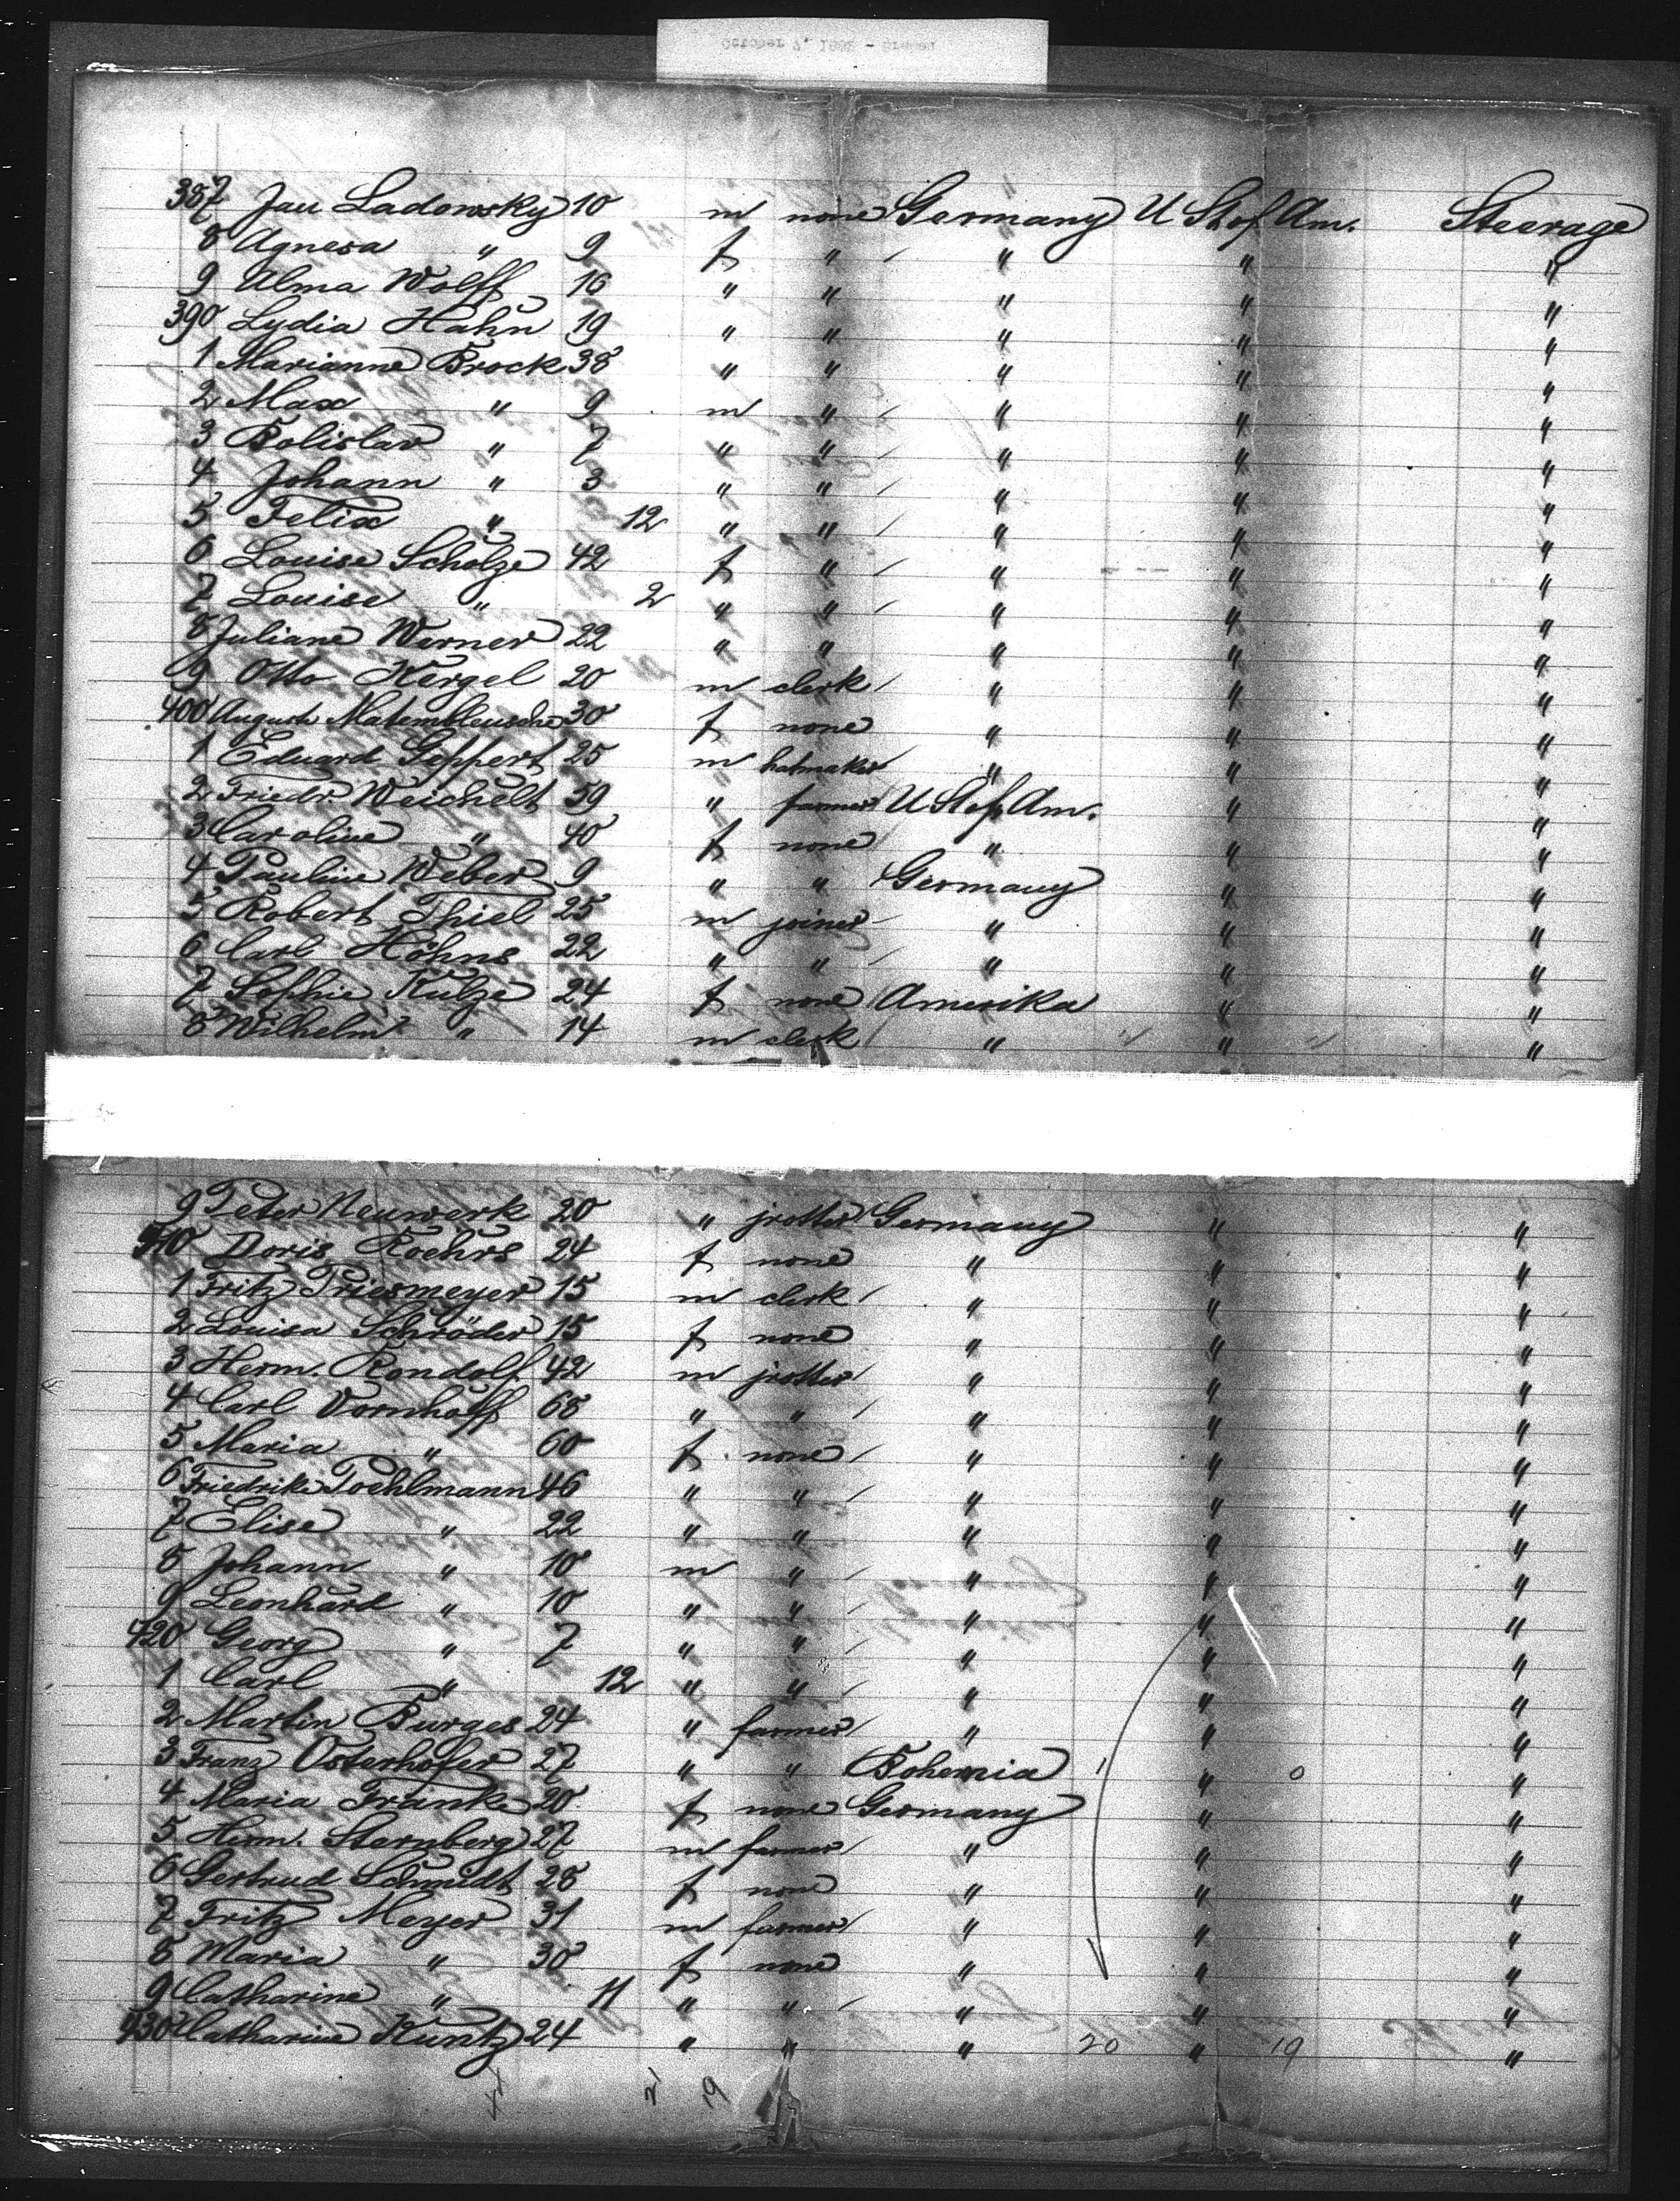 387 Jan Ladowsky 10 m none Germany U St of Am. Steerage
8 Agnesa " 9 f " " " "
9 Alma Wolff 16 " " " " "
390 Lydia Hahn 19 " " " " "
1 Marianne Brock 38 " " " " "
2 Max " 9 m " " " "
3 Bolislav " 7 " " " " "
4 Johann " 3 " " " " "
5 Felix " 12 " " " " "
6 Louise Scholze 42 f " " " "
7 Louise " 2 " " " " "
8 Juliane Werner 22 " " " " "
9 Otto Hergel 20 m clerk " " "
400 August 30 f none " " "
1 Eduard Geppert 25 m hatmaker " " "
2 Friedr. Weichelt 59 " farmer U St of Am. " "
3 Caroline " 40 f none " " "
4 Pauline Weber 9 " " Germany " "
5 Robert Thiel 25 m joiner " " "
6 Carl Höhns 22 " " " " "
7 Sophie Kulze 24 f none Amerika " "
8 Wilhelm " 14 m clerk " " "
9 Peter Neuwerk 20 " Germany " "
410 Doris Roehrs 24 f none " " "
1 Fritz Priesmeyer 15 m clerk " " "
2 Louisa Schröder 15 f none " " "
3 Herm. Rondolf 42 m " " "
4 Carl Vornhoff 68 " " " " "
5 Maria " 60 f none " " "
6 Friedrike Poehlmann 46 " " " " "
7 Elise " 22 " " " " "
8 Johann " 10 m " " " "
9 Leonhard " 10 " " " " "
420 Georg " 7 " " " " "
1 Carl " 12 " " " " "
2 Martin Burges 24 " farmer " " "
3 Franz Osterhofer 27 " " Bohemia " 0 "
4 Maria Franke 20 f none Germany " "
5 Herm. Sternberg 27 m farmer " " "
6 Gertrud Schmidt 28 f none " " "
7 Fritz Meyer 31 m farmer " " "
8 Maria " 30 f none " " "
9 Catharine " 11 " " " " "
430 Catharine Kuntz 24 " " " 20 " 19 "
21 19